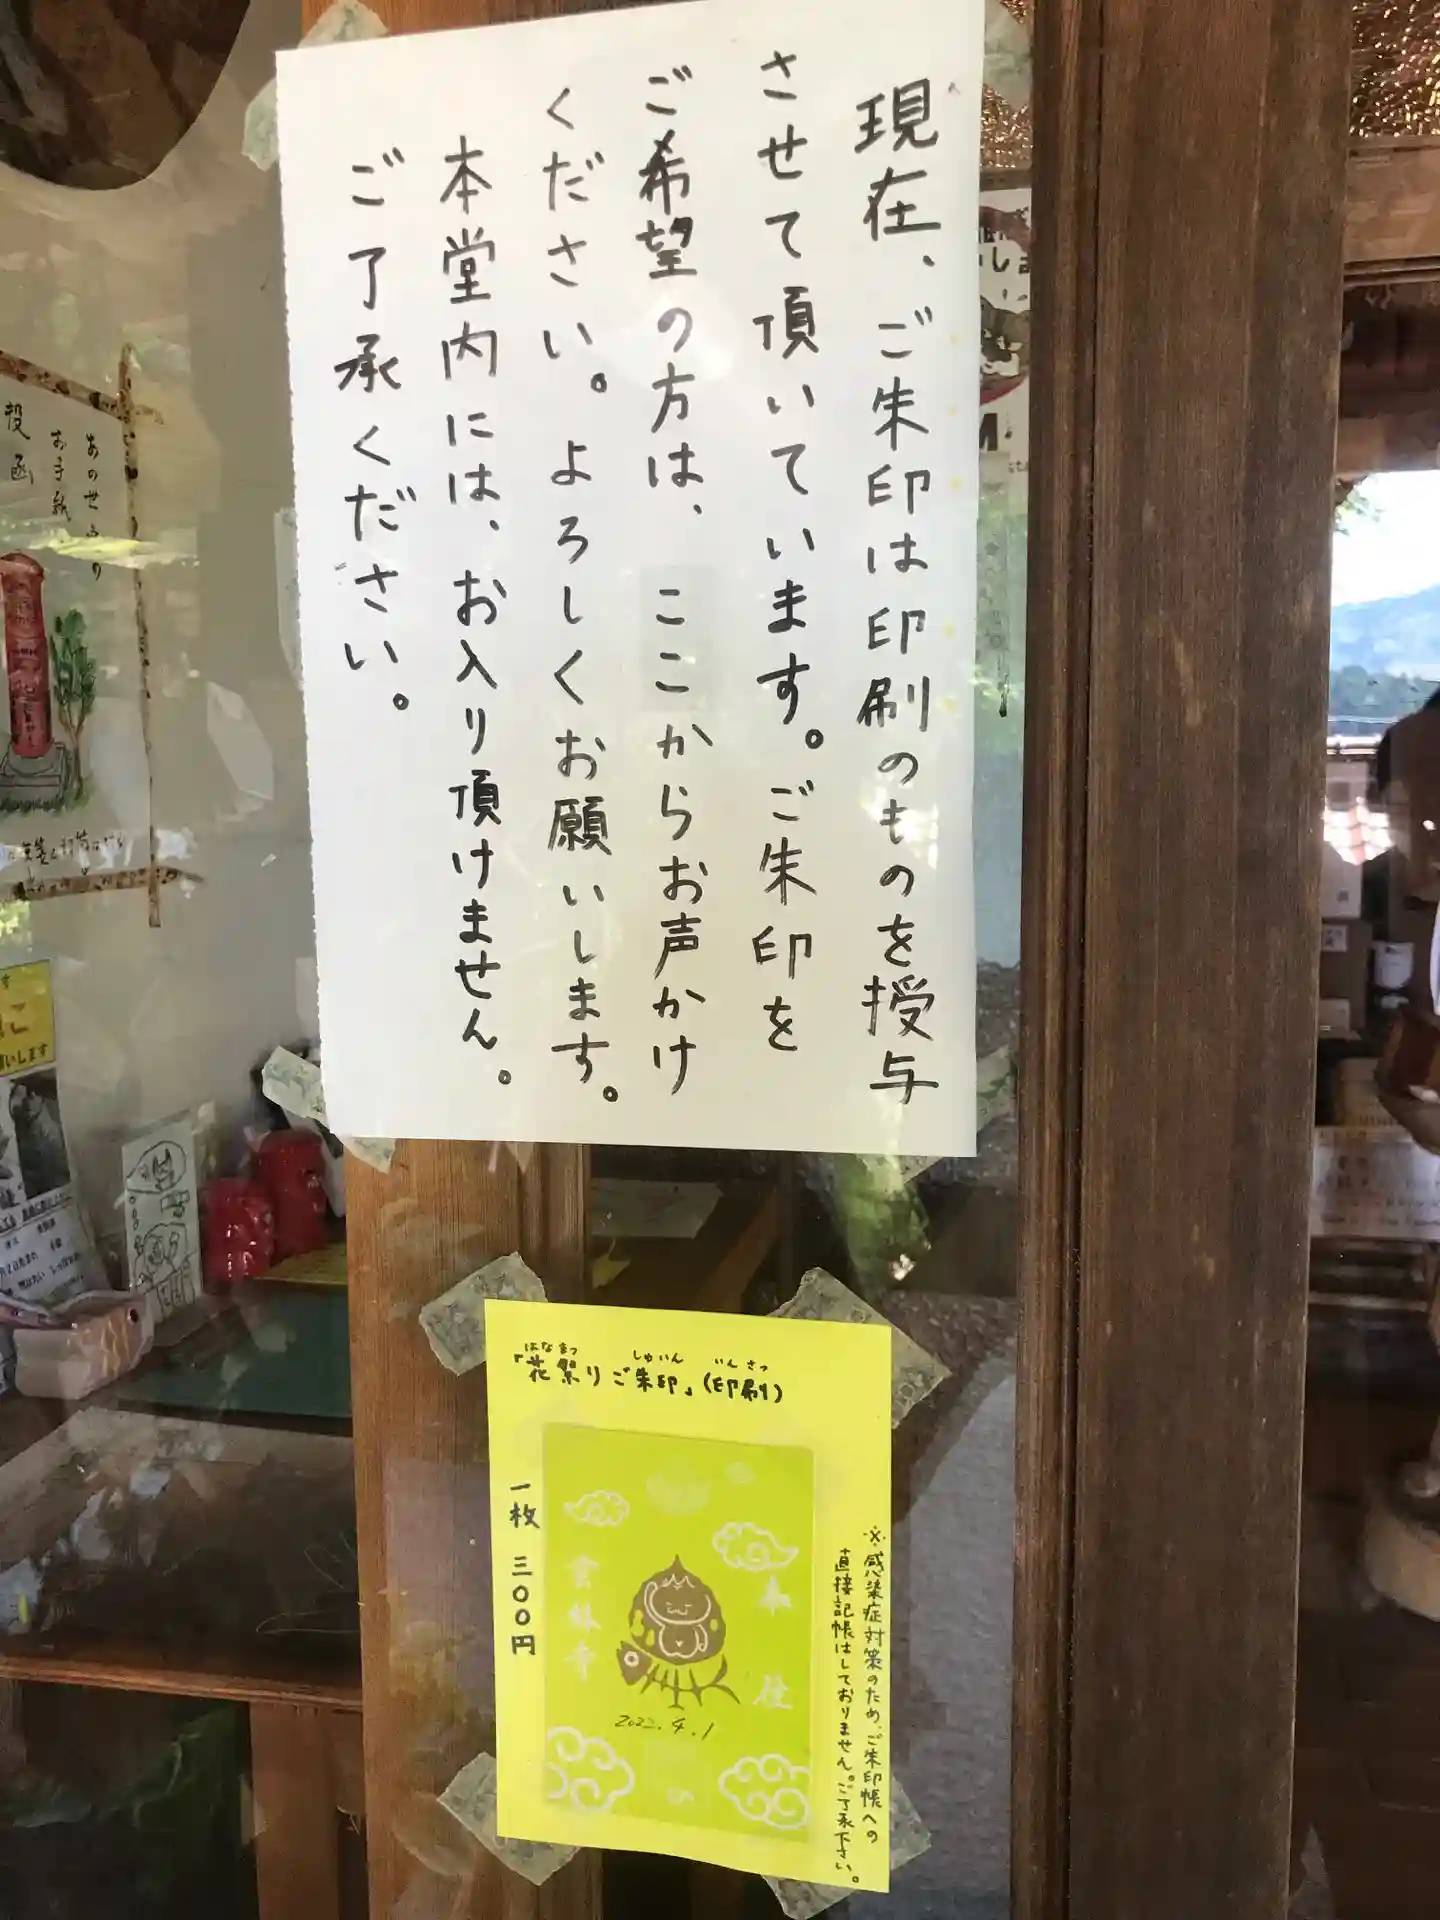 現在、ご朱印は印刷のものを授与
させて頂いています。ご朱印を
ご希望の方は、ここからお声かけ
ください。よろしくお願いします。
本堂内には、お入り頂けません。
ご了承ください。
はなまつ しゅいん いんさつ
「花祭りご朱印」(印刷)
※感染症対策のため、ご朱印帳への
直接記帳はしておりません。ご了承下さい。
一枚 三〇〇円
奉 拝
雲林寺
2022.4.1
あの世への
お手紙
投函